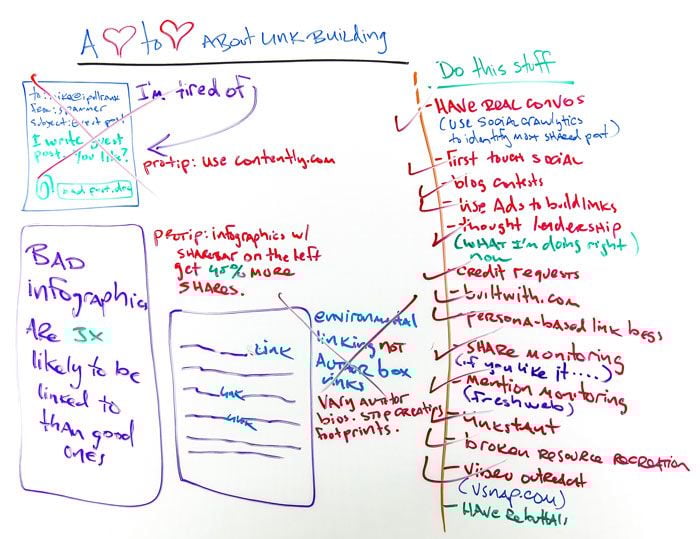 A ♡ to ♡ About Link Building
to: mike@ipullrank
from: spammer
subject: Guest post
I write guest
post. You like?
bad post.doc
I'm tired of
protip: use contently.com
BAD
infographics
ARE 3X
likely to be
linked to
than good
ones
protip: infographics w/
sharebar on the left
get 45% more
shares.
Link
Link
Link
environmental
linking not
Author box
links
Vary author
bios. Stop creating
footprints.
Do this stuff
HAVE REAL CONVOS
(Use Social Crawlytics
to identify most shared post)
First touch social
blog contests
Use Ads to build links
thought leadership
(WHAT I'm doing right)
now
credit requests
builtwith.com
persona-based link begs
SHARE monitoring
(if you like it....)
Mention monitoring
(freshweb)
Linkstant
broken resource recreation
Video outreach
(vsnap.com)
HAVE Rebuttals